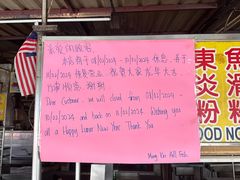 亲爱的顾客
本店将于 08/02/2024 - 10/02/2024 休息, 并于
11/02/2024 恢复营业. 祝贺大家龙年大吉,
万事顺意. 谢谢
Dear Customer, we will closed from 08/02/2024 -
10/02/2024 and back on 11/02/2024 Wishing you
all a Happy Lunar New Year Thank You.
Mung Kee Grill Fish.
東 魚
炎 滑
粉 粉
OOD NOO